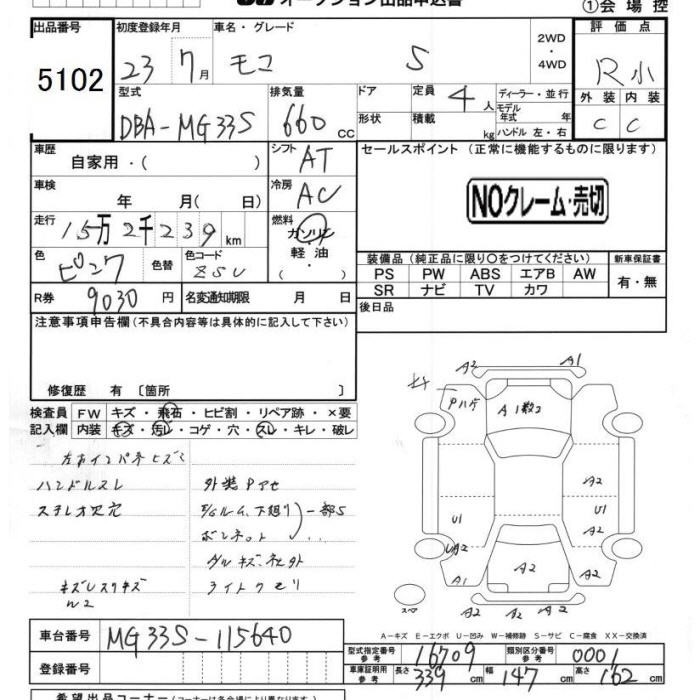 オークション出品申込書
①会場控
出品番号 初度登録年月 車名・グレード 2WD・4WD 評価点
5102 23 7月 モコ S R小
型式 排気量 ドア 定員 4人 ディーラー・並行 外装 内装
DBA-MG33S 660cc 形状 積載 kg モデル年式 年 C C
ハンドル 左・右
車歴 自家用・( ) シフト AT セールスポイント (正常に機能するものに限ります)
車検 年 月( 日) 冷房 AC NOクレーム・売切
走行 15万2千239km 燃料 ガソリン・軽油・( )
色 ピンク 色替 色コード ZSU 装備品 (純正品に限り〇をつけてください) 新車保証書
PS PW ABS エアB AW 有・無
SR ナビ TV カワ
R券 9030円 名変通知期限 月 日 後日品
注意事項申告欄 (不具合内容等は具体的に記入して下さい)
修復歴 有 〔箇所 〕
検査員記入欄 FW キズ・飛石・ヒビ割・リペア跡・×要
内装 キズ・汚レ・コゲ・穴・スレ・キレ・破レ
ハンドルスレ
ステレオ欠穴
外装Pアセ
ルーム、下廻り 一部S
ボンネット
ライトクモリ
W2
A2 A1
Pハゲ A1数2
A2
U1 A2
UA2 A2
A1 A2 A2
スペア
A-キズ E-エクボ U-凹み W-補修跡 S-サビ C-腐食 XX-交換済
車台番号 MG33S-115640
登録番号
型式指定番号 参考 16709 類別区分番号 参考 0001
車庫証明用 参考 長さ 339cm 幅 147cm 高さ 162cm
希望出品コーナー